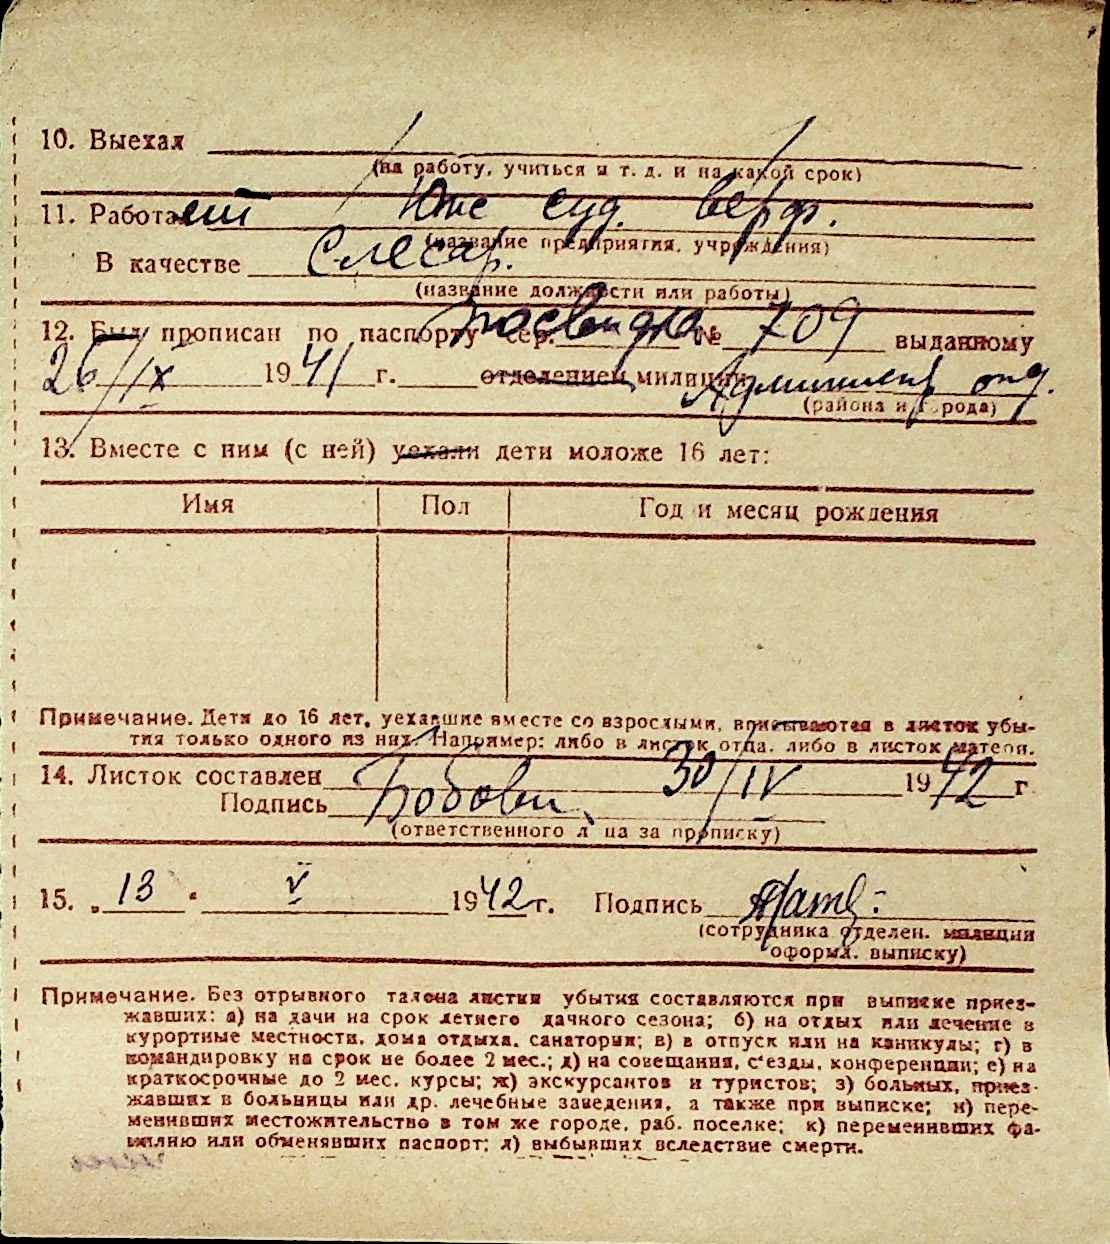 10. Выехал
(на работу, учиться и т. д. и на какой срок)
11. Работает Юж. суд. верф.
(название предприятия, учреждения)
В качестве Слесар.
(название должности или работы)
12. Был прописан по паспорту сер. № 709 выданному
26/IX 1941 г. отделением милиции
(района и города)
13. Вместе с ним (с ней) уехали дети моложе 16 лет:
Имя Пол Год и месяц рождения
Примечание. Дети до 16 лет, уехавшие вместе со взрослыми, вписываются в листок убы-
тия только одного из них. Например: либо в листок отца, либо в листок матери.
14. Листок составлен 30/IV 1942 г
Подпись
(ответственного лица за прописку)
15. „13 " V 1942 г. Подпись
(сотрудника отделен. милиции
оформ. выписку)
Примечание. Без отрывного талона листки убытия составляются при выписке приез-
жавших: а) на дачи на срок летнего дачного сезона; б) на отдых или лечение в
курортные местности, дома отдыха, санатории; в) в отпуск или на каникулы; г) в
командировку на срок не более 2 мес.; д) на совещания, с'езды, конференции; е) на
краткосрочные до 2 мес. курсы; ж) экскурсантов и туристов; з) больных, приез-
жавших в больницы или др. лечебные заведения, а также при выписке; и) пере-
менивших местожительство в том же городе, раб. поселке; к) переменивших фа-
милию или обменявших паспорт; л) выбывших вследствие смерти.